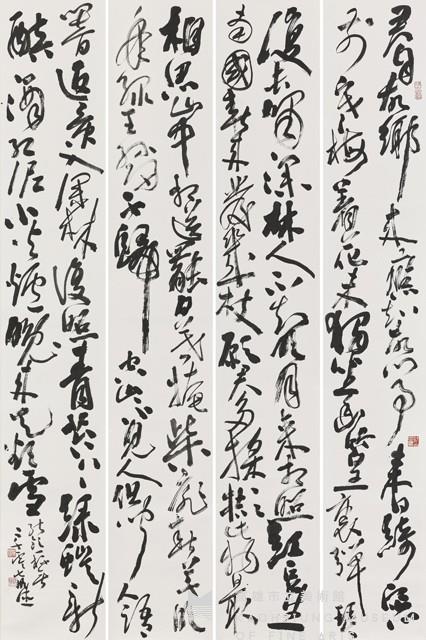 君自故鄉來應知故鄉事來日綺窗
前寒梅著花未獨坐幽篁裏彈琴
復長嘯深林人不知明月來相照紅豆生
南國春來發幾枝願君多采擷此物最
相思山中相送罷日暮掩柴扉春草明
年綠王孫歸不歸空山不見人但聞人語
響返景入深林復照青苔上綠螘新
醅酒紅泥小火爐晚來天欲雪
能飲一杯無
高雄市立美術館
KAOHSIUNG MUSEUM
OF FINE ARTS